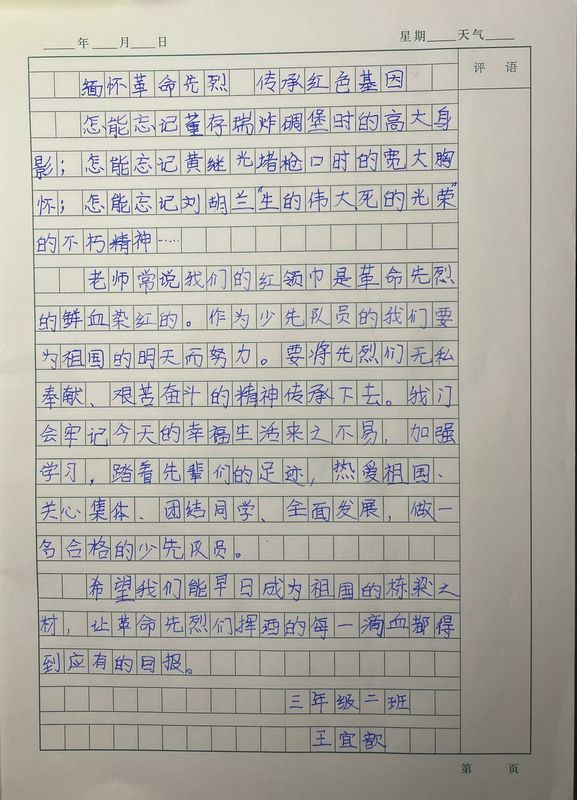 ____年____月____日 星期____天气____
评 语
缅怀革命先烈 传承红色基因
怎能忘记董存瑞炸碉堡时的高大身
影；怎能忘记黄继光堵枪口时的宽大胸
怀；怎能忘记刘胡兰“生的伟大,死的光荣”
的不朽精神……
老师常说我们的红领巾是革命先烈
的鲜血染红的。作为少先队员的我们要
为祖国的明天而努力。要将先烈们无私
奉献、艰苦奋斗的精神传承下去。我们
会牢记今天的幸福生活来之不易，加强
学习，踏着先辈们的足迹，热爱祖国、
关心集体、团结同学、全面发展，做一
名合格的少先队员。
希望我们能早日成为祖国的栋梁之
材，让革命先烈们挥洒的每一滴血都得
到应有的回报。
三年级二班
王宜歆
第 页